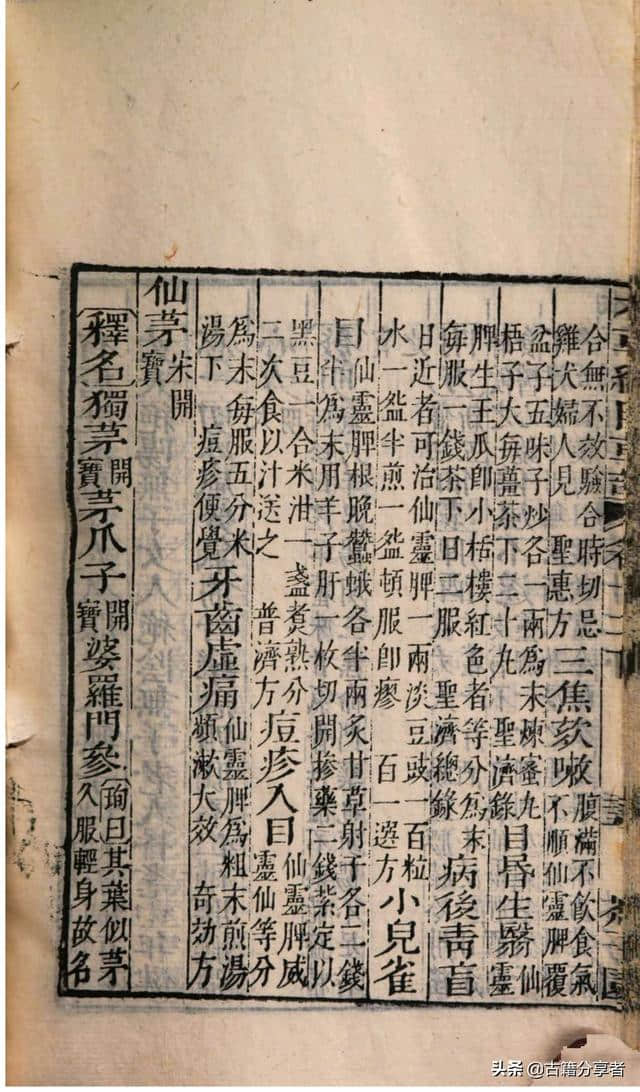 合無不效驗合時切忌
雞犬婦人見 聖惠方
三焦欬嗽
腹滿不飲食氣
不順仙靈脾覆
盆子五味子炒各一兩為末煉蜜丸
梧子大每薑茶下二十丸 聖濟錄
目昏生瞖
仙
靈
脾生王瓜即小栝樓紅色者等分為末
每服一錢茶下日二服 聖濟總錄
病後青盲
日近者可治仙靈脾一兩淡豆豉一百粒
水一盌半煎一盌頓服即瘳 百一選方
小兒雀
目
仙靈脾根晚蠶蛾各半兩炙甘草射干各二錢
半為末用羊子肝一枚切開摻藥二錢紮定以
黑豆一合米泔一盞煑熟分
二次食以汁送之 普濟方
痘疹入目
仙靈脾威
靈仙等分
為末每服五分米
湯下 痘疹便覺
牙齒虛痛
仙靈脾為粗末煎湯
頻漱大效 奇効方
仙茅 宋開寶
釋名 獨茅 開寶 茅爪子 開寶 婆羅門參
珣曰其葉似茅
久服輕身故名
头条 @古籍分享者